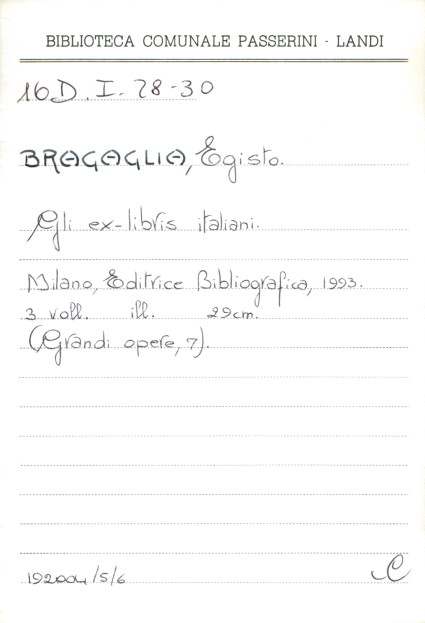 BIBLIOTECA COMUNALE PASSERINI - LANDI
16D. I. 28-30
BRAGAGLIA, Egisto.
Gli ex-libris italiani.
Milano, Editrice Bibliografica, 1993.
3 voll. ill. 29cm.
(Grandi opere, 7).
192004/5/6 C